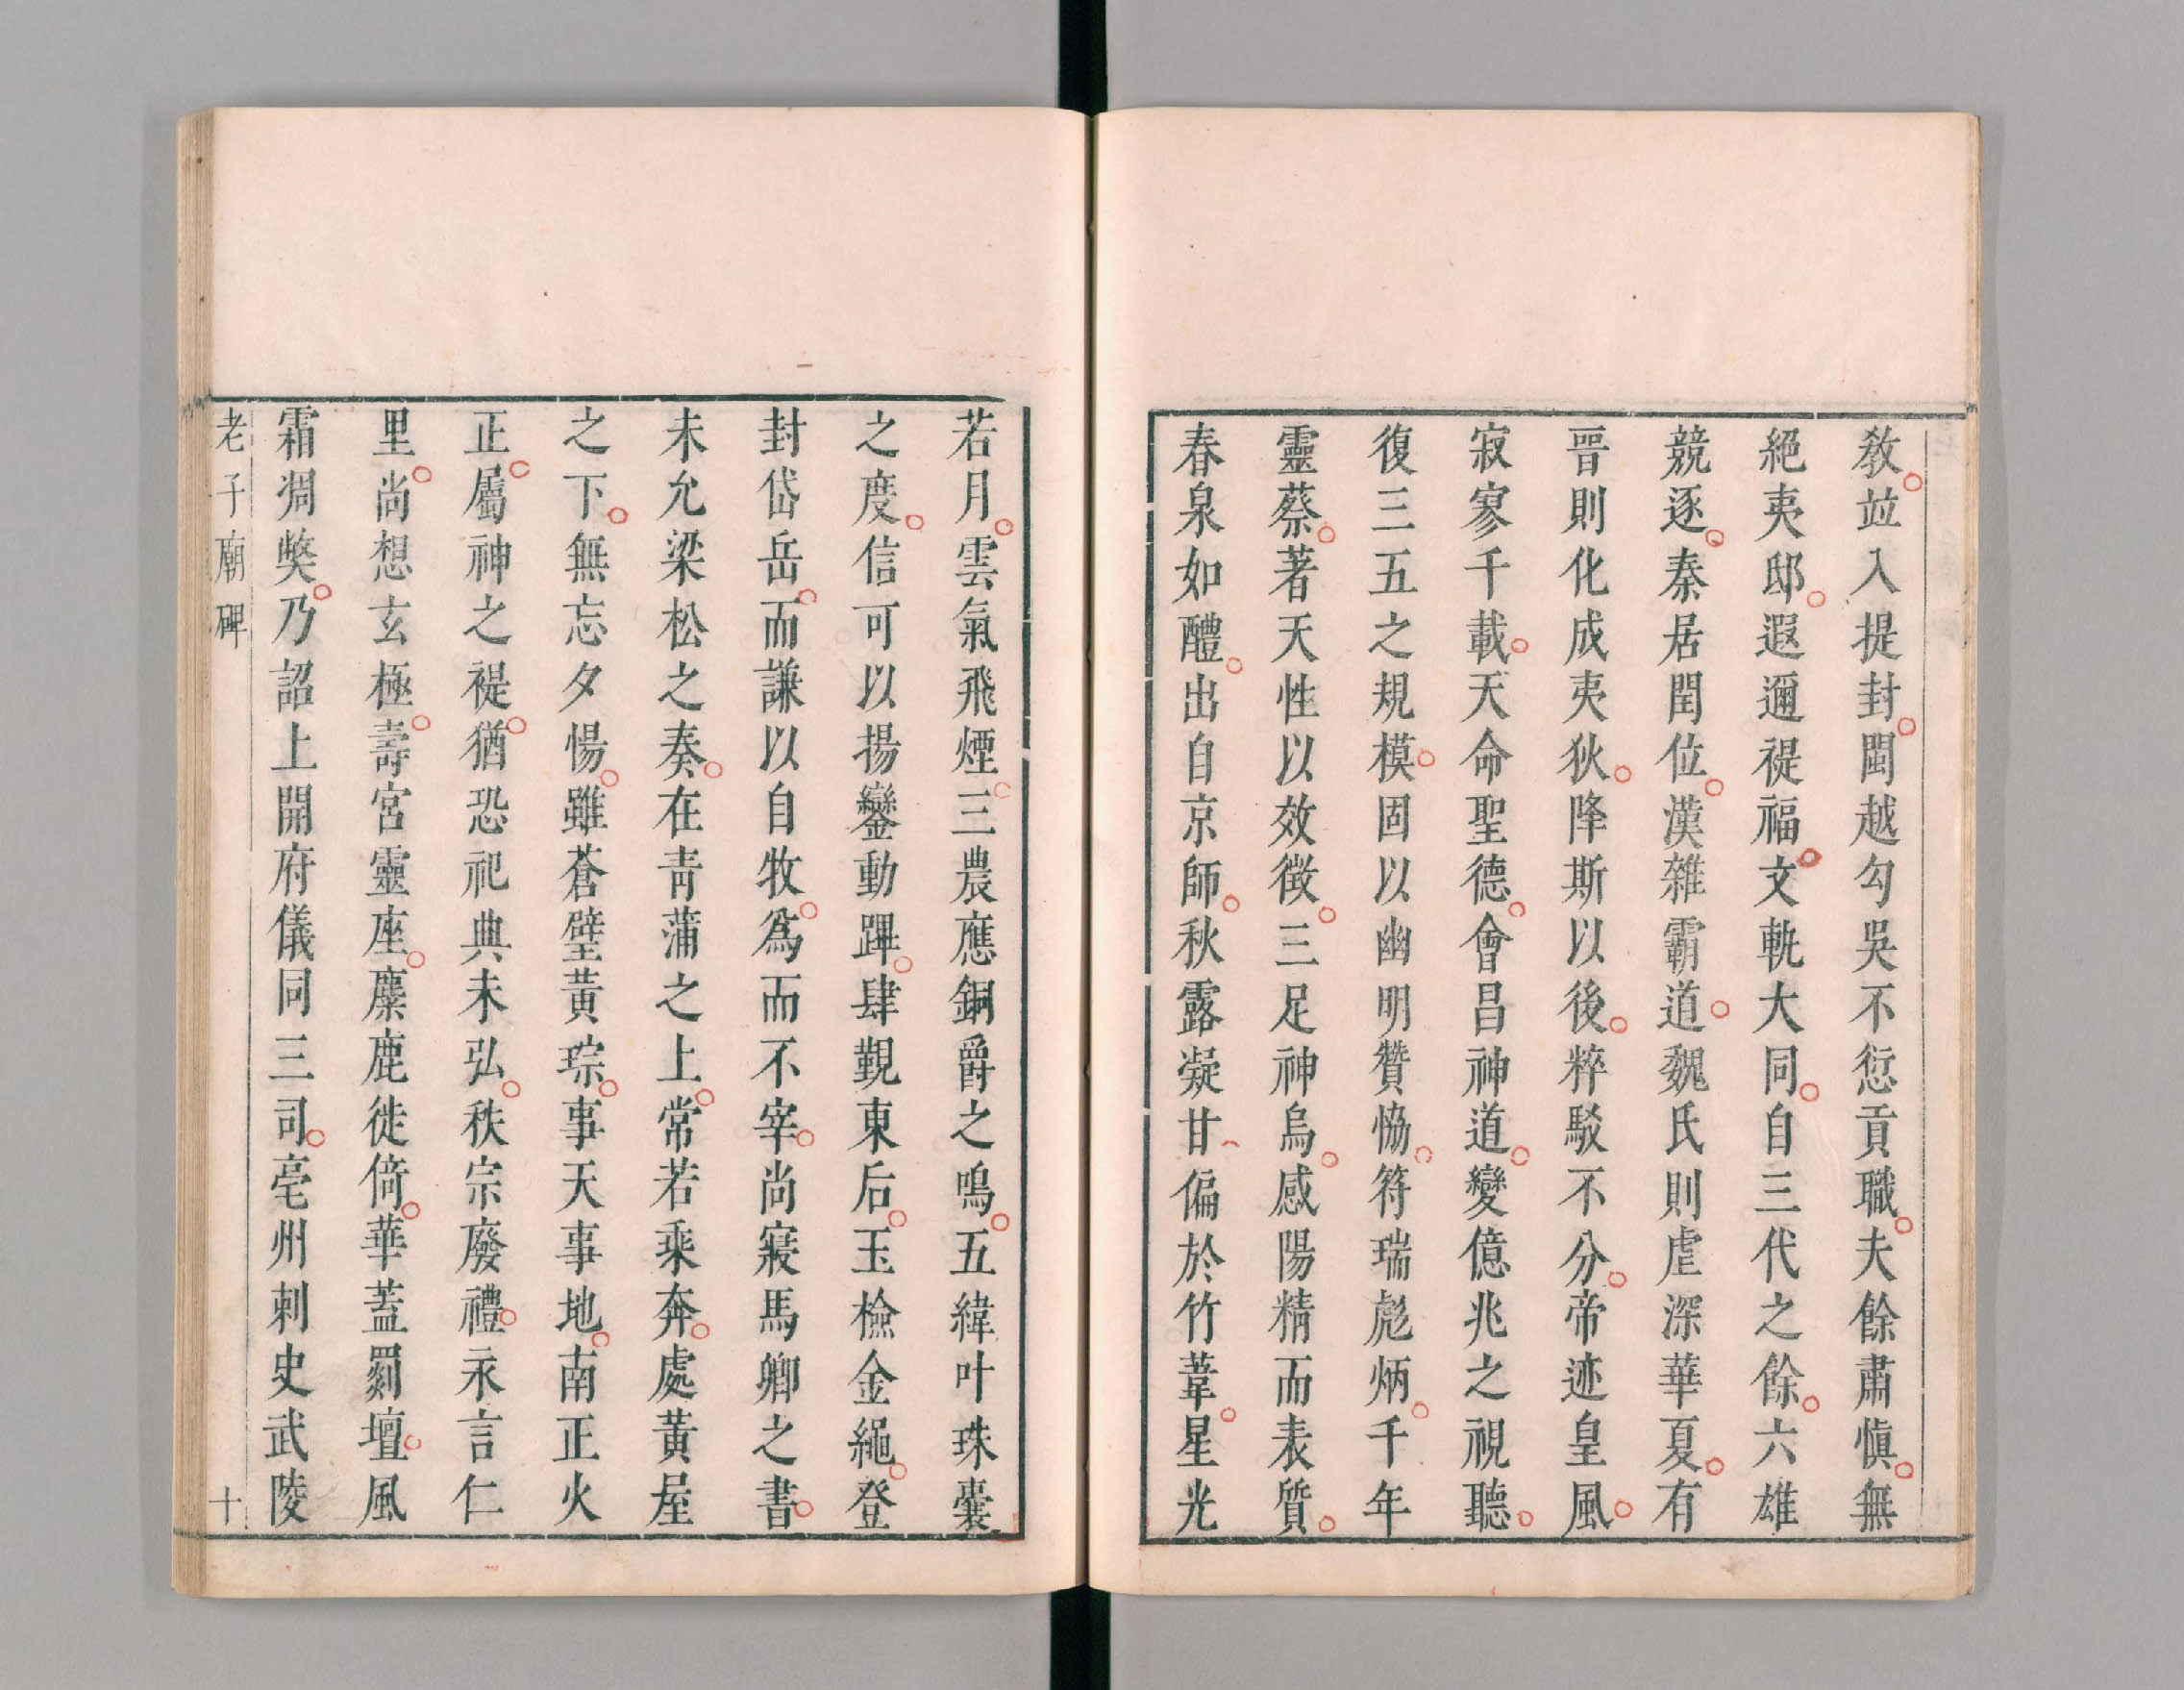 教竝入提封閩越勾吳不愆貢職夫餘肅愼無
絕夷邸遐邇禔福文軌大同自三代之餘六雄
競逐秦居閏位漢雜霸道魏氏則虐深華夏有
晉則化成夷狄降斯以後粹駁不分帝迹皇風
寂寥千載天命聖德會昌神道變億兆之視聽
復三五之規模固以幽明贊恊符瑞彪炳千年
靈蔡著天性以效徵三足神烏感陽精而表質
春泉如醴出自京師秋露凝甘偏於竹葦星光
若月雲氣飛煙三農應銅爵之鳴五緯叶珠囊
之度信可以揚鑾動蹕肆覲東后玉檢金繩登
封岱岳而謙以自牧爲而不宰尚寢馬卿之書
未允梁松之奏在靑蒲之上常若乘奔處黃屋
之下無忘夕惕雖蒼璧黃琮事天事地南正火
正屬神之禔猶恐祀典未弘秩宗廢禮永言仁
里尚想玄極壽宮靈座麋鹿徙倚華蓋罽壇風
霜凋獘乃詔上開府儀同三司亳州刺史武陵
老子廟碑
十